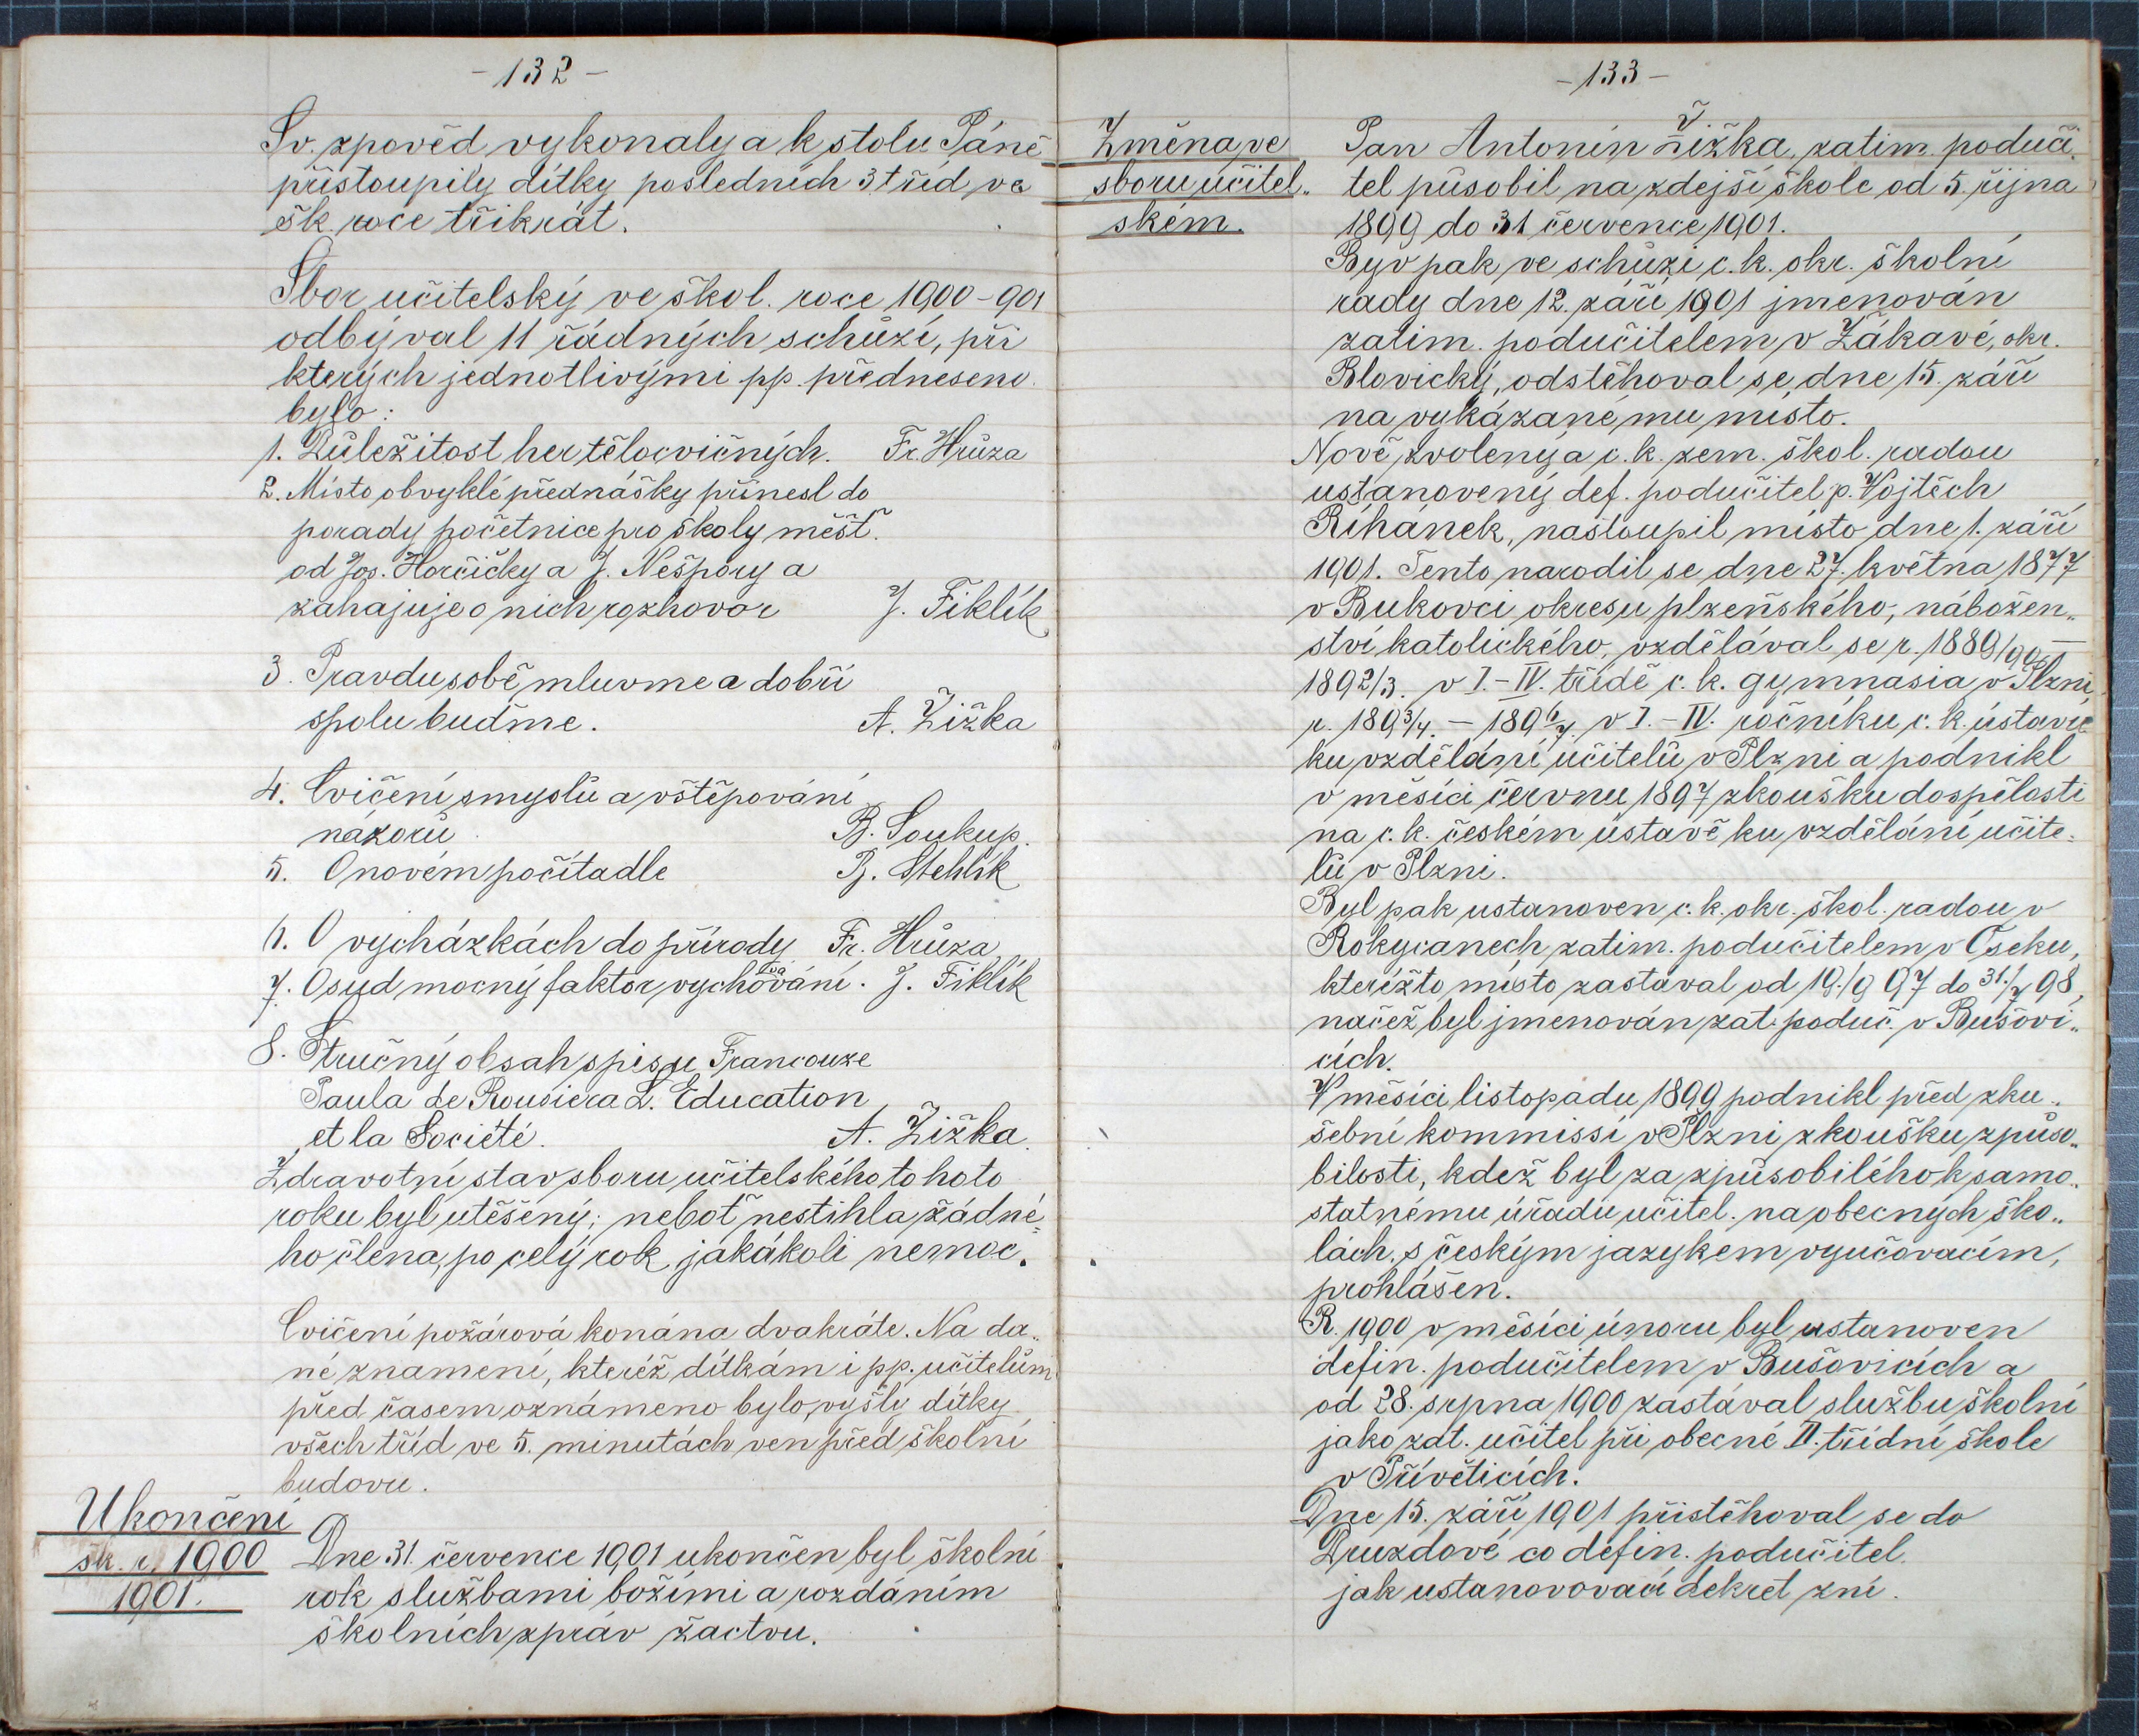 - 132 -
Sv. zpověd vykonaly a k stolu Páně
přistoupily dítky posledních 3 tříd ve
šk. roce třikrát.
Sbor učitelský ve škol. roce 1900 - 901
odbýval 11 řádných schůzí, při
kterých jednotlivými pp. předneseno
bylo:
1. Důležitost her tělocvičných. Fr. Hrůza
2. Místo obvyklé přednášky přinesl do
porady početnice pro školy měšť.
od Jos. Horčičky a J. Nešpory a
zahajuje o nich rozhovor J. Fiklík
3. Pravdu sobě mluvme a dobří
spolu buďme. A. Žižka
4. Cvičení smyslů a vštěpování
názorů. B. Soukup.
5. O novém počítadle Bj. Stehlík
6. O vycházkách do přírody Fr. Hrůza
7. Osud mocný faktor vychování. J. Fiklík
8. Stručný obsah spisu Francouze
Paula de Rousiera L. Education
et la Société. A. Žižka.
Zdravotní stav sboru učitelského tohoto
roku byl utěšený; neboť nestihla žádné-
ho člena po celý rok jakákoli nemoc.
Cvičení požárová konána dvakráte. Na da„
né znamení, kteréž dítkám i pp. učitelům
před časem oznámeno bylo, vyšly dítky
všech tříd ve 5. minutách ven před školní
budovu.
Ukončení
šk. r. 1900
1901.
Dne 31. července 1901 ukončen byl školní
rok službami božími a rozdáním
školních zpráv žactvu.
- 133 -
Změna ve
sboru učitel„
ském.
Pan Antonín Žižka, zatim. poduči„
tel působil na zdejší škole od 5. října
1899 do 31 července 1901.
Byv pak ve schůzi c. k. okr. školní
rady dne 12. září 1901 jmenován
zatim. podučitelem v Žákavé, okr.
Blovický, odstěhoval se dne 15. září
na vykázané mu místo.
Nově zvolený a c. k. zem. škol. radou
ustanovený def. podučitel p. Vojtěch
Říhánek, nastoupil místo dne 1. září
1901. Tento narodil se dne 27. května 1877
v Bukovci okresu plzeňského, nábožen„
ství katolického, vzdělával se r. 1889/90 —
1892/3. v I. - IV. třídě c. k. gymnasia v Plzni,
r. 1893/4. - 1896/7. v I. - IV. ročníku c. k. ústavu
ku vzdělání učitelů v Plzni a podnikl
v měsíci červnu 1897 zkoušku dospělosti
na c. k. českém ústavě ku vzdělání učite-
lů v Plzni.
Byl pak ustanoven c. k. okr. škol. radou v
Rokycanech zatim. podučitelem v Oseku,
kterížto místo zastával od 19./9 97 do 31./7 98,
načež byl jmenován zat. poduč. v Bušovi„
cích.
V měsíci listopadu 1899 podnikl před zku„
šební kommissí v Plzni zkoušku způso„
bilosti, kdež byl za způsobilého k samo„
statnému úřadu učitel. na obecných ško„
lách, s českým jazykem vyučovacím,
prohlášen.
R. 1900 v měsíci únoru byl ustanoven
defin. podučitelem v Bušovicích a
od 28. srpna 1900 zastával službu školní
jako zat. učitel při obecné II. třídní škole
v Přívěticích.
Dne 15. září 1901 přistěhoval se do
Druzdové co defin. podučitel.
jak ustanovovací dekret zní.